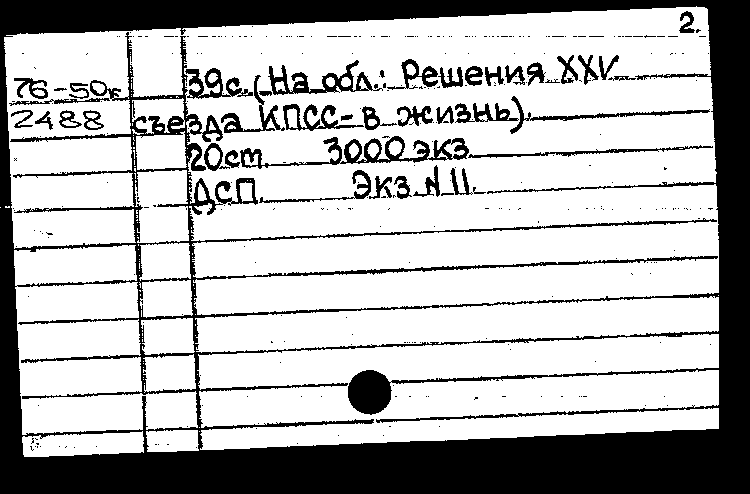 2.
76-50к 39с. (На обл.: Решения XXV
2488 съезда КПСС - в жизнь).
20см. 3000 экз.
ДСП. Экз. N 11.